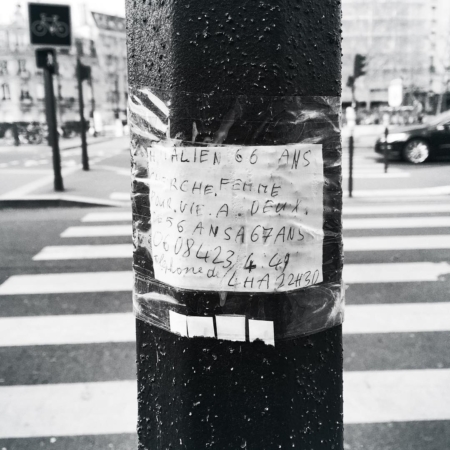 ITALIEN 66 ANS
CHERCHE FEMME
POUR.VIE.A.DEUX.
DE 56 ANS A 67 ANS
0608423 4.49
4HA 22H30